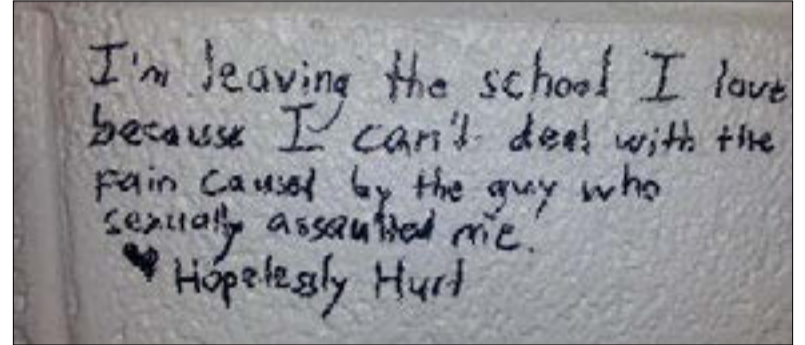 I'm leaving the school I love
because I can't deal with the
pain caused by the guy who
sexually assaulted me.
♥ Hopelessly Hurt